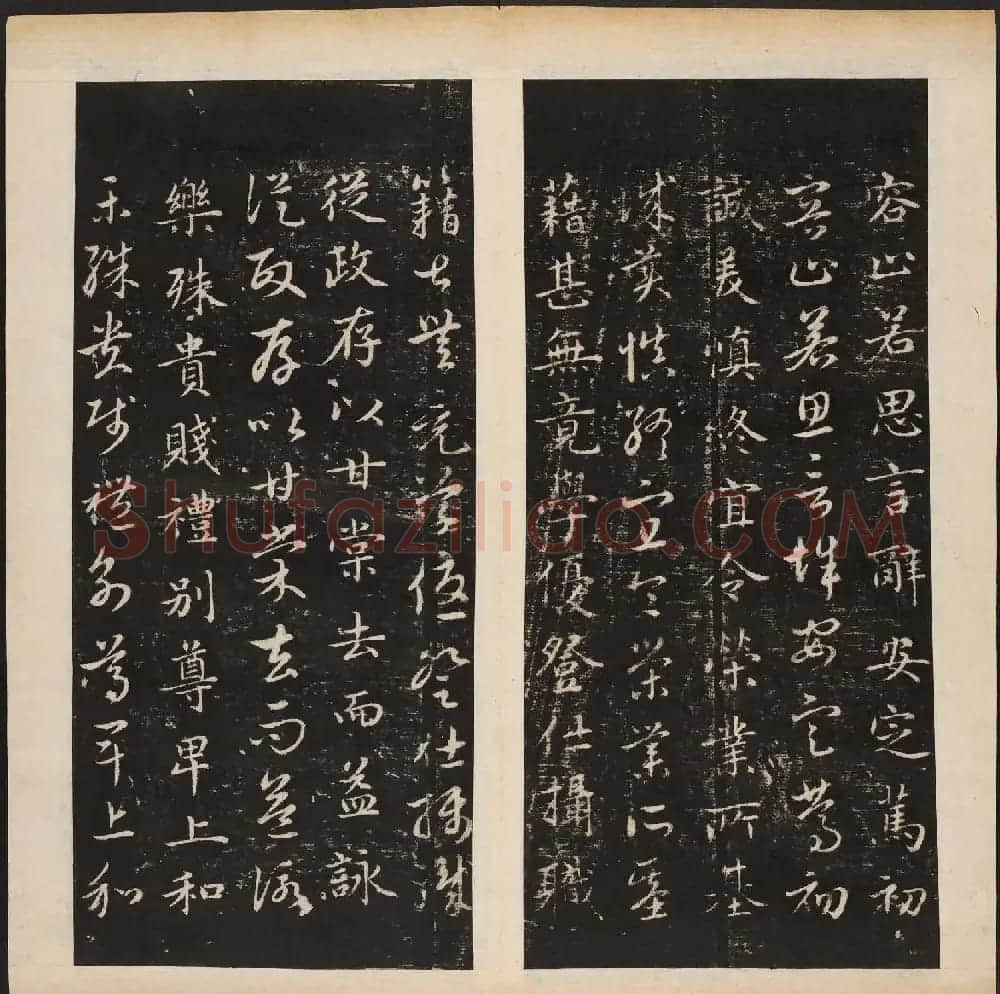 容止若思言辭安定篤初
容止若思言辭安定篤初
誠美慎終宜令榮業所基
誠美慎終宜令榮業所基
藉甚無竟學優登仕攝職
籍甚無竟學優登仕攝職
從政存以甘棠去而益詠
從政存以甘棠去而益詠
樂殊貴賤禮別尊卑上和
樂殊貴賤禮別尊卑上和
Shufaziliao.COM